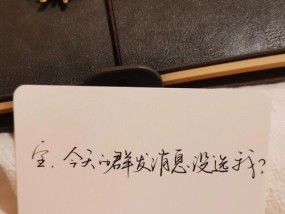 宝、今天的群发消息没选我？